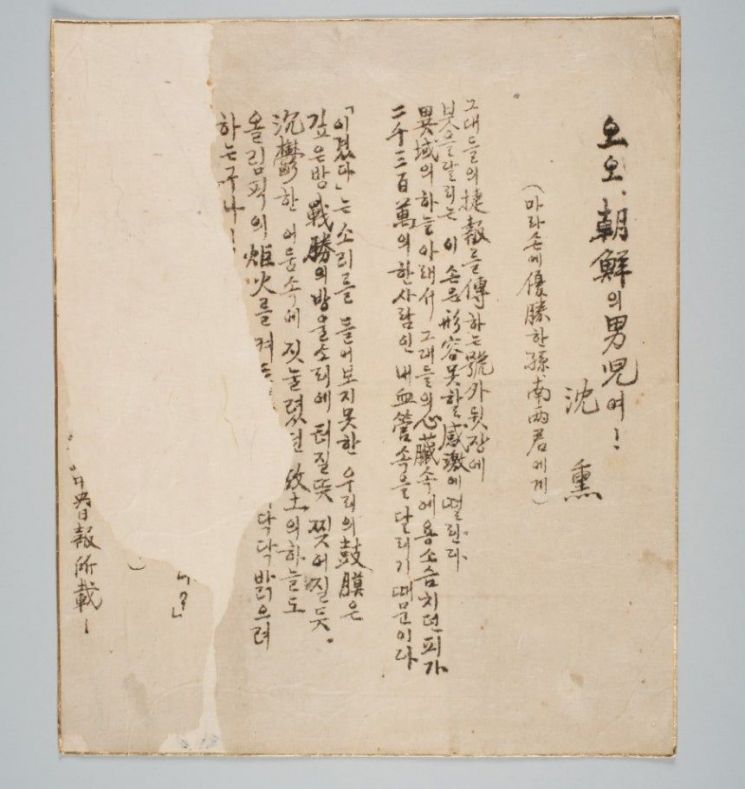 오오, 朝鮮의男児여!
沈 熏
(마라손에優勝한孫南両君에게)
그대들의捷報를傳하는號外뒷장에
붓을달리는 이 손은形容못할感激에떨린다.
異域의하늘아래서 그대들의心臟속에용소슴치던피가
二千三百萬의한사람인 내血管속을달리기때문이다
「이겼다」는 소리를 들어보지못한 우리의鼓膜은
깊은밤 戰勝의방울소리에 터질뜻 찢어질듯.
沈鬱한 어둠속에 짓눌렸던 故土의하늘도
올림픽의 炬火를켜 닥닥 밝으려
하는구나!
?」
)
中央日報所載!